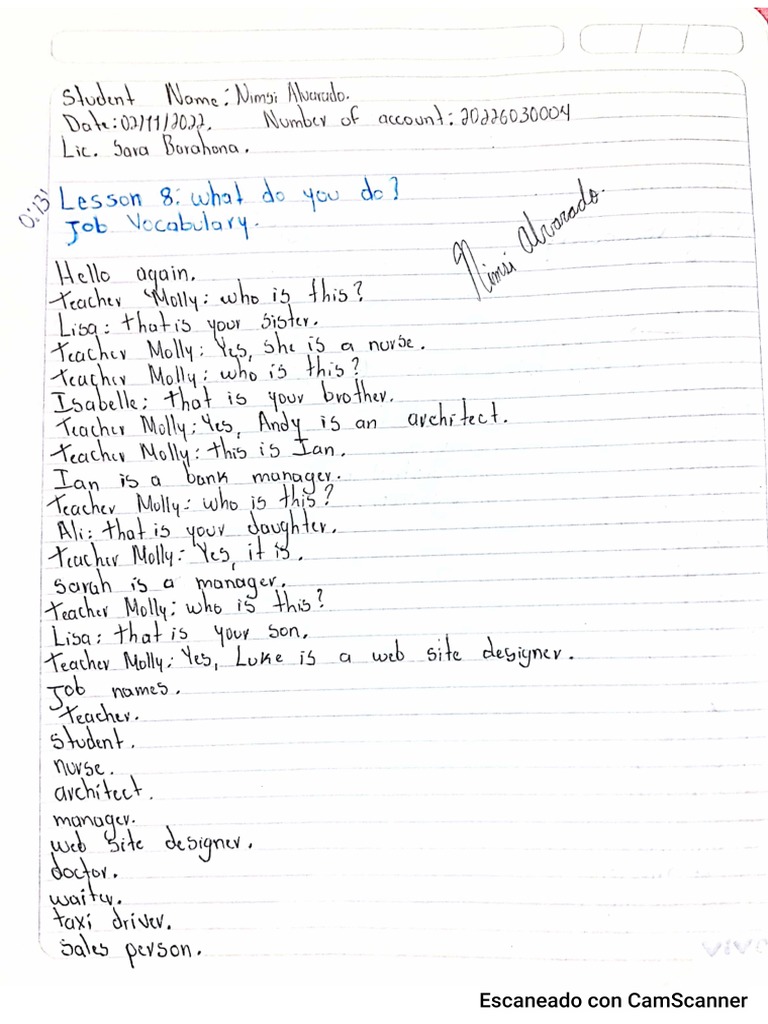 Student Name: Nimsi Alvarado.
Date: 02/11/2022. Number of account: 20226030004
Lic. Sara Barahona.
0:13'
Lesson 8: what do you do?
Job Vocabulary.
Nimsi Alvarado.
Hello again.
Teacher Molly: who is this?
Lisa: that is your sister.
Teacher Molly: Yes, she is a nurse.
Teacher Molly: who is this?
Isabelle: that is your brother.
Teacher Molly: Yes, Andy is an architect.
Teacher Molly: this is Ian.
Ian is a bank manager.
Teacher Molly: who is this?
Ali: that is your daughter.
Teacher Molly: Yes, it is.
Sarah is a manager.
Teacher Molly: who is this?
Lisa: that is your son.
Teacher Molly: Yes, Luke is a web site designer.
Job names.
Teacher.
student.
nurse.
architect.
manager.
web site designer.
doctor.
waiter.
taxi driver.
sales person.
vivo
Escaneado con CamScanner